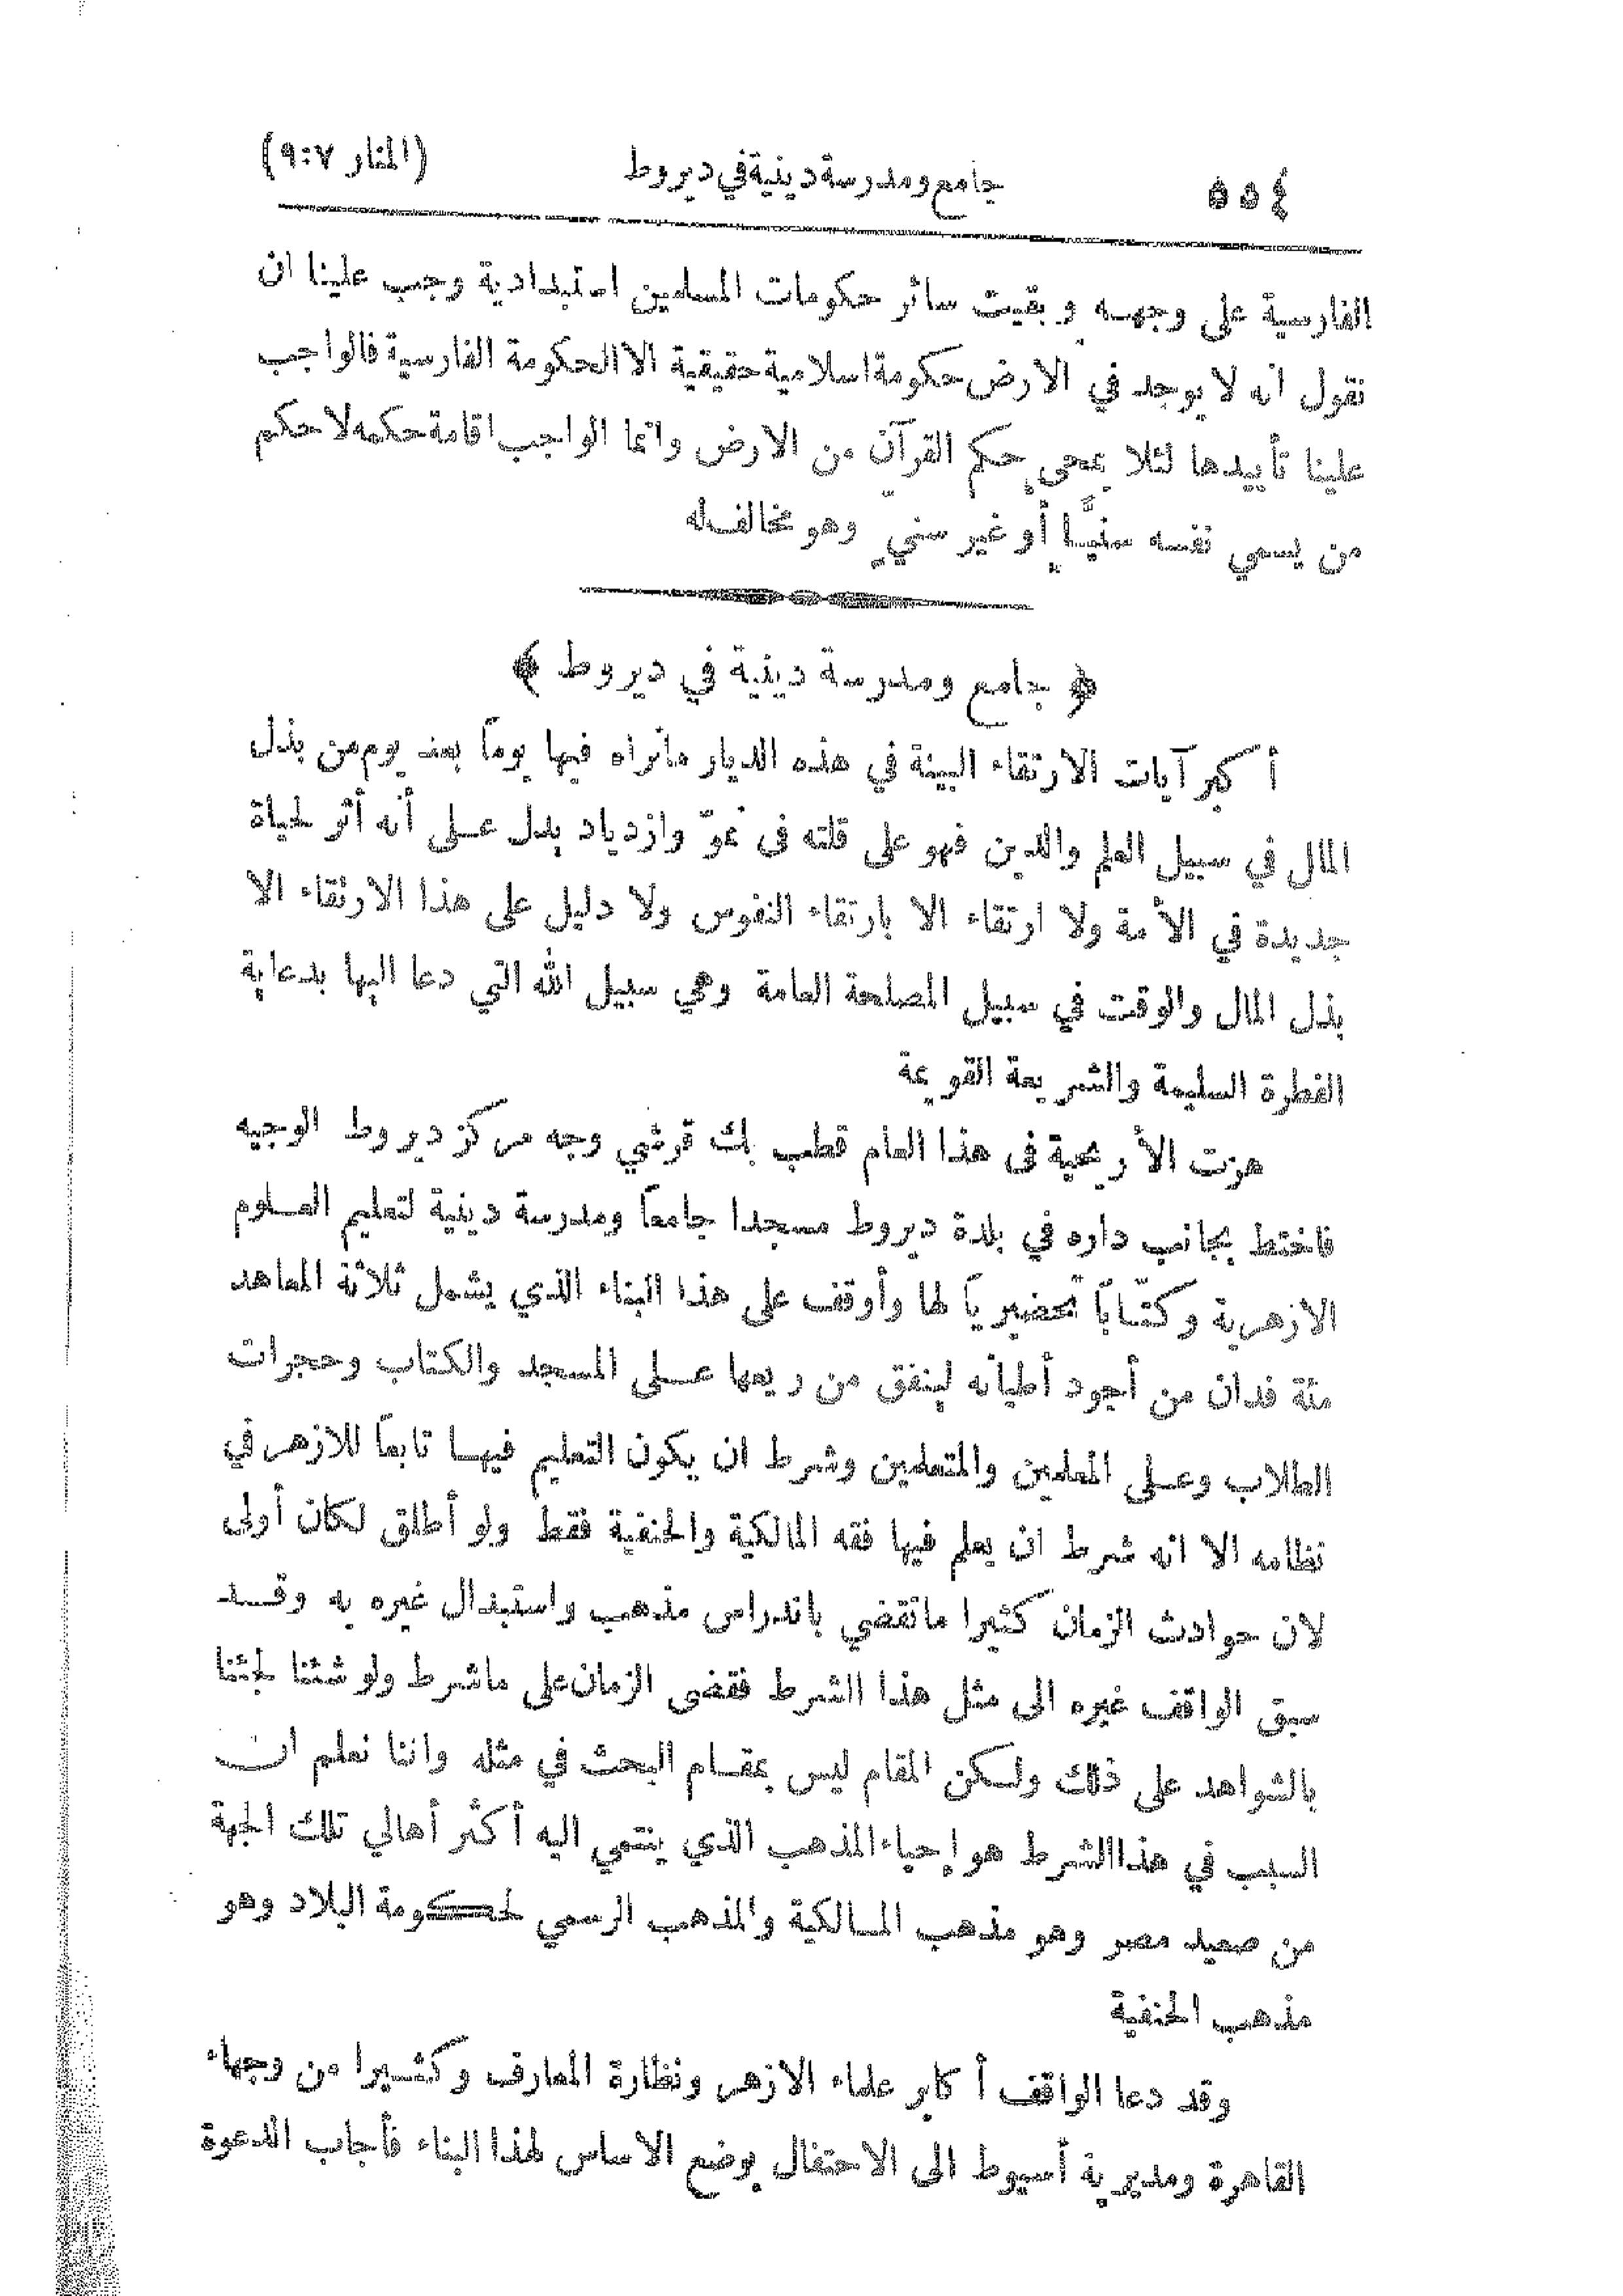 ٥٥٤ جامع ومدرسة دينية في ديروط (المنار ٩:٧)
الفارسية على وجهه وبقيت سائر حكومات المسلمين استبدادية وجب علينا ان
نقول انه لا يوجد في الارض حكومة اسلامية حقيقية الا الحكومة الفارسية فالواجب
علينا تأييدها لئلا يمحى حكم القرآن من الارض وانما الواجب اقامة حكمه لا حكم
من يسمي نفسه سنيًّا أو غير سني وهو مخالف له
﴿ جامع ومدرسة دينية في ديروط ﴾
أكبر آيات الارتقاء البينة في هذه الديار مانراه فيها يوماً بعد يوم من بذل
المال في سبيل العلم والدين فهو على قلته فى نموّ وازدياد يدل عـلى أنه أثر لحياة
جديدة في الأمة ولا ارتقاء الا بارتقاء النفوس ولا دليل على هذا الارتقاء الا
بذل المال والوقت في سبيل المصلحة العامة وهي سبيل الله التي دعا اليها بدعاية
الفطرة السليمة والشريعة القويمة
هزت الأريحية فى هذا العام قطب بك قرشي وجه مركز ديروط الوجيه
فاختط بجانب داره في بلدة ديروط مسجدا جامعاً ومدرسة دينية لتعليم العـلوم
الازهرية وكتّاباً تحضيرياً لها وأوقف على هذا البناء الذي يشمل ثلاثة المعاهد
مئة فدان من أجود أطيانه لينفق من ريعها عـلى المسجد والكتاب وحجرات
الطلاب وعـلى المعلمين والمتعلمين وشرط ان يكون التعليم فيهـا تابعاً للازهر في
نظامه الا انه شرط ان يعلم فيها فقه المالكية والحنفية فقط ولو أطلق لكان أولى
لان حوادث الزمان كثيرا ماتقضي باندراس مذهب واستبدال غيره به وقـد
سبق الواقف غيره الى مثل هذا الشرط فقضى الزمان على ماشرط ولو شئنا لجئنا
بالشواهد على ذلك ولكن المقام ليس بمقـام البحث في مثله واننا نعلم ان
السبب في هذا الشرط هو إحياء المذهب الذي ينتمي اليه أكثر أهالي تلك الجهة
من صعيد مصر وهو مذهب المـالكية والمذهب الرسمي لحكومة البلاد وهو
مذهب الحنفية
وقد دعا الواقف أكابر علماء الازهر ونظارة المعارف وكثـيرا من وجهاء
القاهرة ومديرية أسيوط الى الاحتفال بوضع الاساس لهذا البناء فأجاب الدعوة